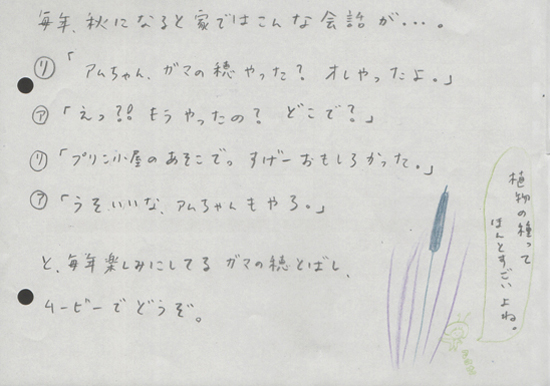 毎年、秋になると家ではこんな会話が・・・。
リ「アムちゃん、ガマの穂やった？ オレやったよ。」
ア「えっ？！もうやったの？ どこで？」
リ「プリン小屋のあそこでっ すげーおもしろかった。」
ア「うそ、いいな、アムちゃんもやろ。」
と、毎年楽しみにしてる ガマの穂とばし、
ムービーでどうぞ。
植物の種って
ほんとすごいよね。